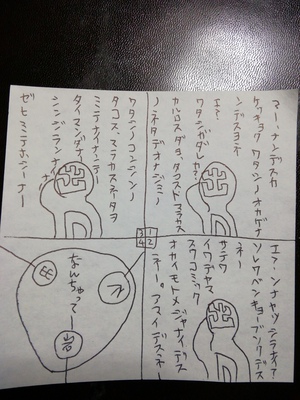 マー、ナンデスカ
ケッキョク ワタシノ オカゲナ
ンデスヨネ
エ?
ワタシガダレカ?
カルロスダヨ、タコスドマラカス
ノネタデオナジミノ
エ?ンナヤツシラナイ?
ソレワベンキョーブソクデス
ネー
サテワ
イワテヤマ
スワコミック
オカイモトメジャナイデス
ネー。アマイデスネー
ワタシノコンシンノ
タコス、マラカスネータヲ
ミテナイナンテー
タイマンダナー
シンジランナイ
ゼヒミテホシーナー
1
2
3
4
なんちゃってー
岩